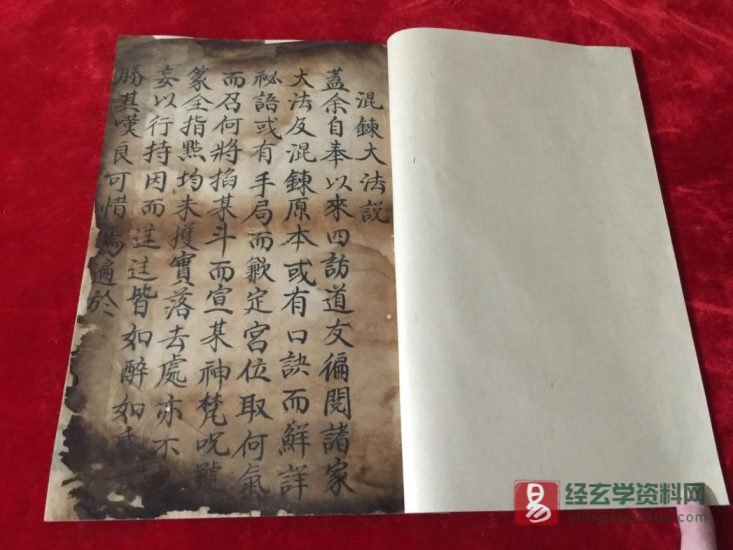 混鍊大法説
蓋余自奉以來四訪道友徧閱諸家
大法及混鍊原本或有口訣而鮮詳
祕語或有手局而歉定宮位取何氣
而召何將掐某斗而宣某神梵呪號
篆全指㸃均未獲實落去處亦不
妄以行持因而迋迋皆如醉如
勝其嘆良可惜焉遍於
易 经玄学资料网